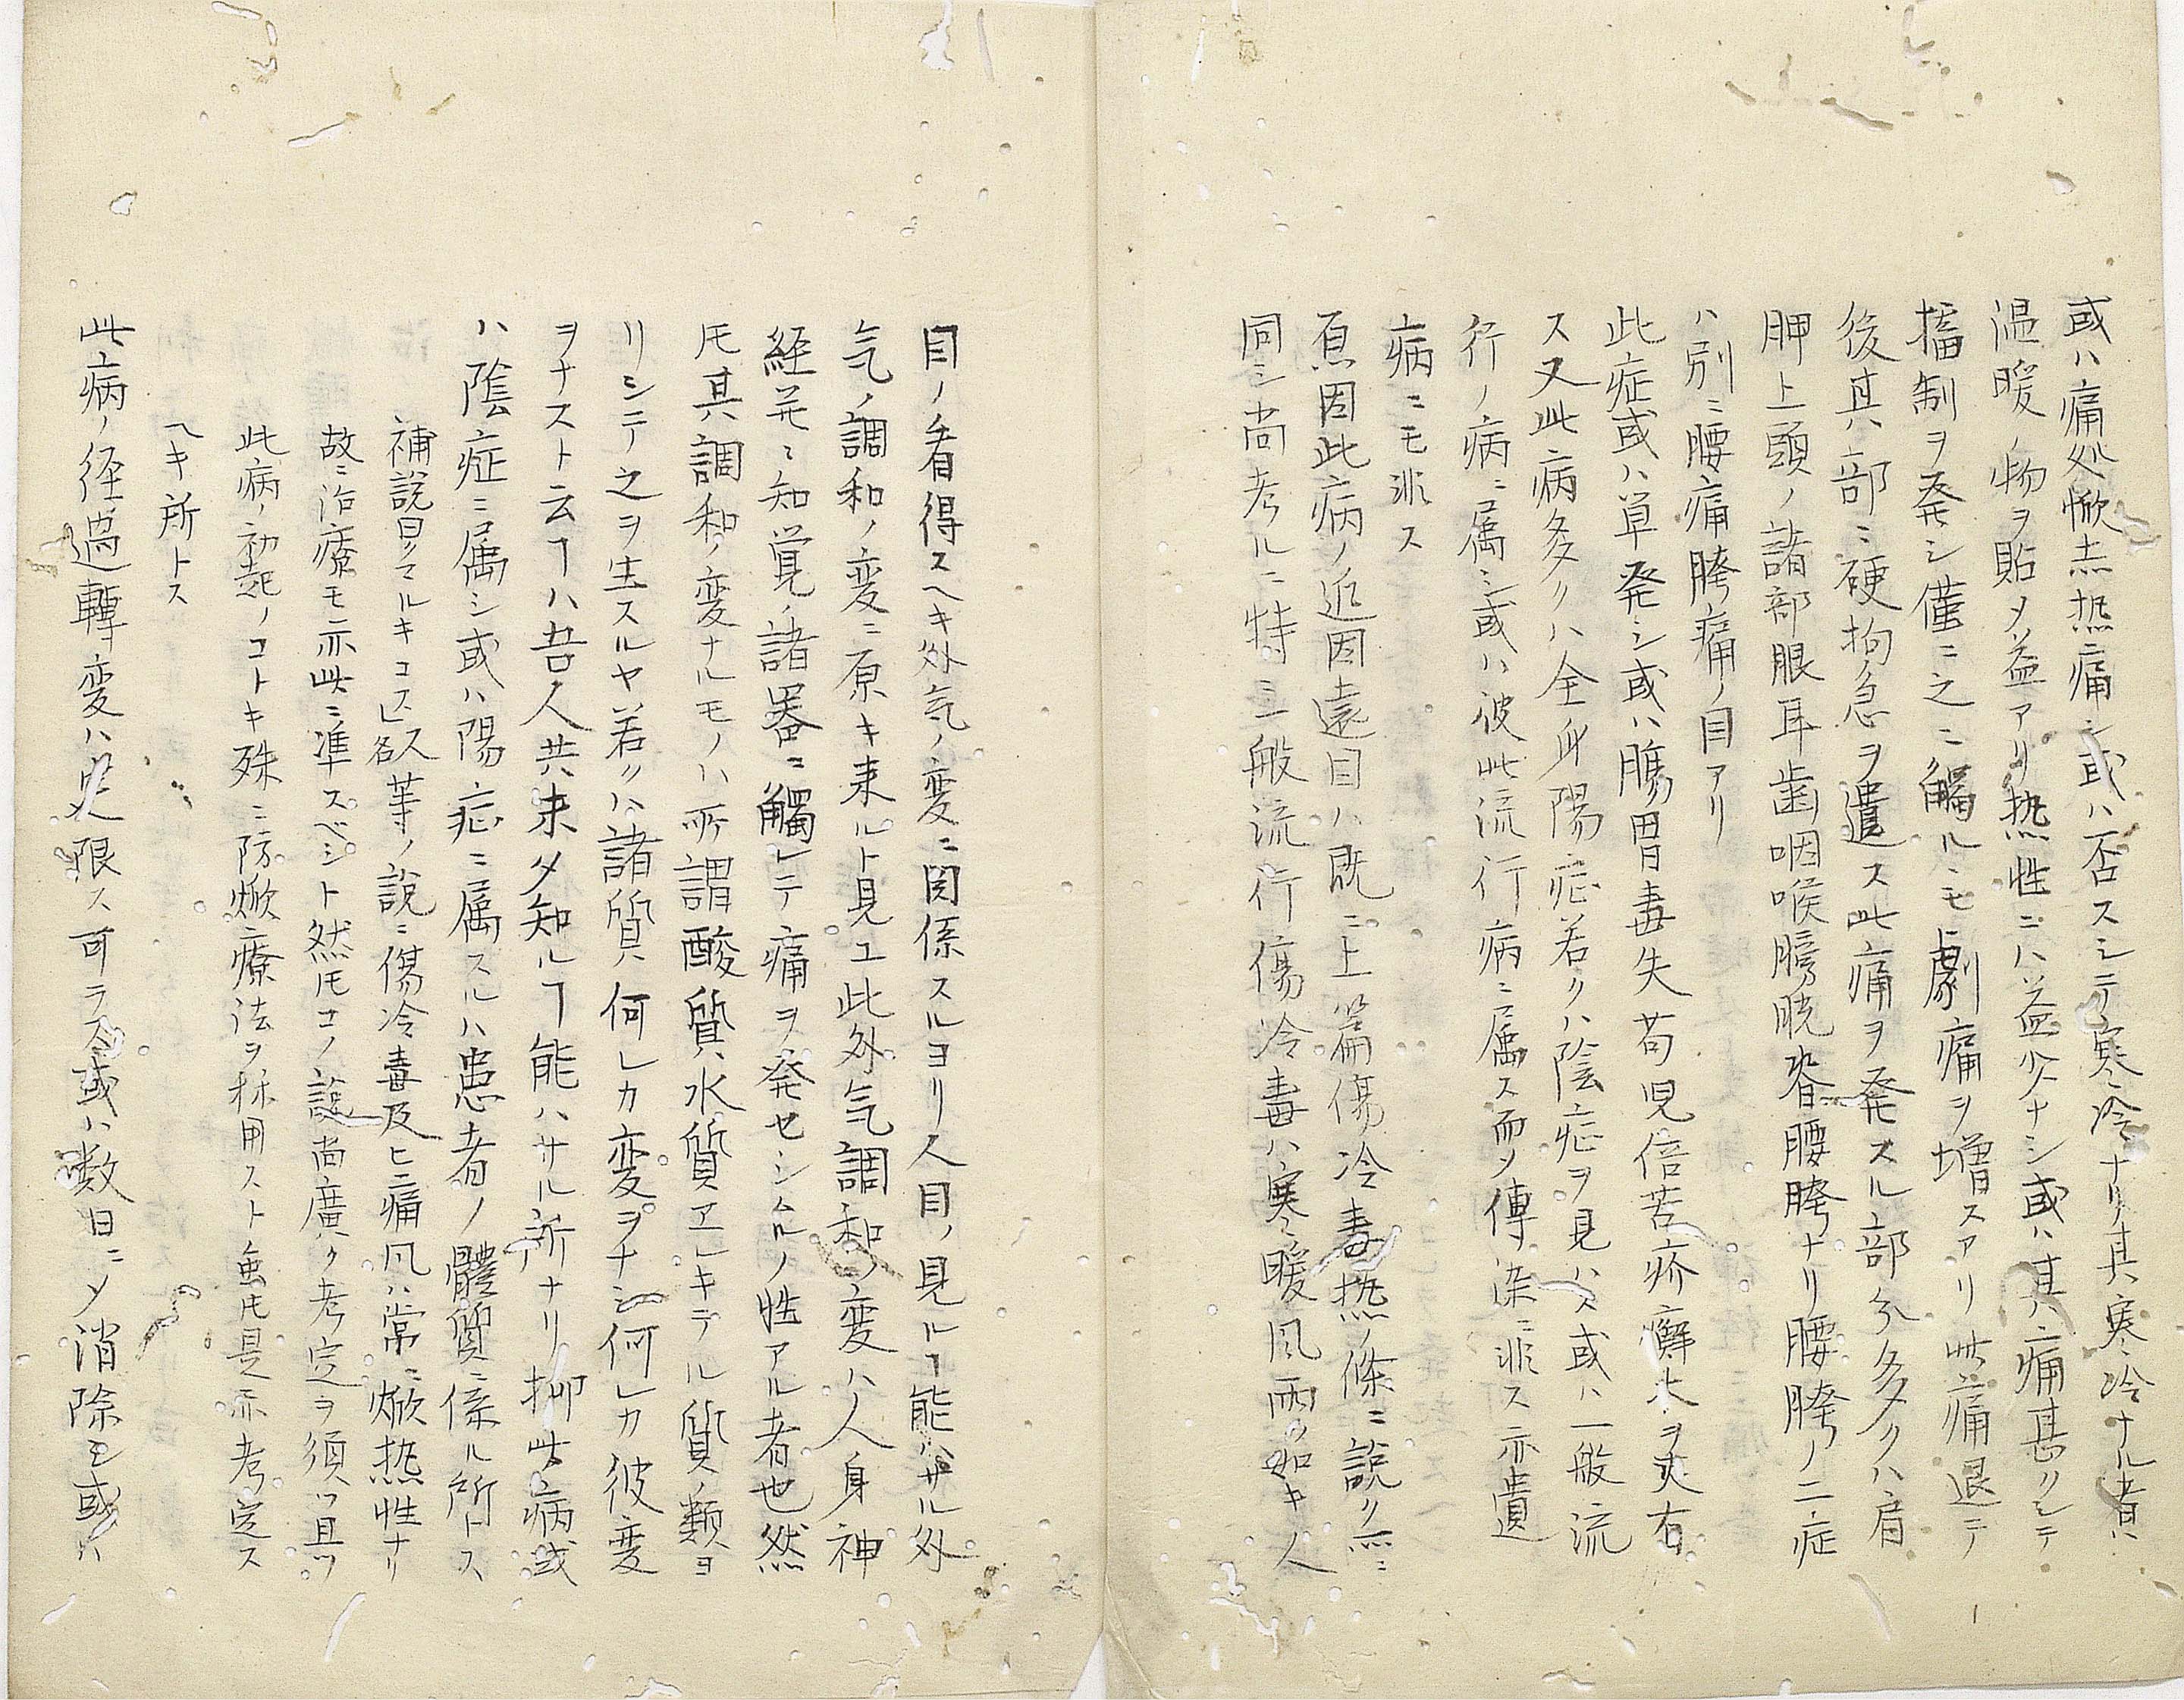 或ハ痛処焮赤热痛シ或ハ否スシテ寒冷ナリ其寒冷ナル者ハ
温暖ノ物ヲ貼メ益アリ热性ニハ益少ナシ或ハ其痛甚クシテ
搐制ヲ発シ僅ニ之ニ觸ルヽモ劇痛ヲ増スアリ此痛退テ
後其部ニ硬拘急ヲ遺ス此痛ヲ発スル部分多クハ肩
胛上頭ノ諸部眼耳歯咽喉膀胱脊腰胯ナリ腰胯ノ二症
ハ別ニ腰痛胯痛ノ目アリ
此症或ハ草発シ或ハ膓胃毒失苟児倍苦疥癬
ス又此病多クハ全身陽症若クハ陰症ヲ見ハス或ハ一般流
行ノ病ニ属シ或ハ彼此流行病ニ属ス而メ傳染ニ非ス亦遺
病ニモ非ス
原因此病ノ近因遠因ハ既ニ上篇傷冷毒热ノ條ニ説クニ
同シ尚考ルニ特ニ一般流行傷冷毒ハ寒暖風雨ノ如キ人
目ノ看得スヘキ外気ノ変ニ関係スルヨリ人目ノ見ルヿ能ハサル外
気ノ調和ノ変ニ原キ来ルト見ユ此外気調和ノ変ハ人身神
経并ニ知覚ノ諸器ニ觸レテ痛ヲ発セシムルノ性アル者也然
𪜈其調和ノ変ナルモノハ所謂酸質水質ヱレキテル質ノ類ヨ
リシテ之ヲ生スルヤ若クハ諸質何レカ変ヲナシ何レカ彼変
ヲナスト云フヿハ吾人共未タ知ルヿ能ハサル所ナリ抑此病或
ハ陰症ニ属シ或ハ陽症ニ属スルハ患者ノ體質ニ係ル所トス
補説曰クマルキコス人名等ノ説ニ傷冷毒及ヒ痛風ハ常ニ焮热性ナリ
故ニ治療モ亦此ニ準スベシト然𪜈コノ説尚廣ク考定ヲ須ツ且ツ
此病ノ初起ノコトキ殊ニ防焮療法ヲ採用スト虽𪜈是亦考定ス
ヘキ所トス
此病ノ径過轉変ハ定限ス可ラス或ハ数日ニメ消除シ或ハ